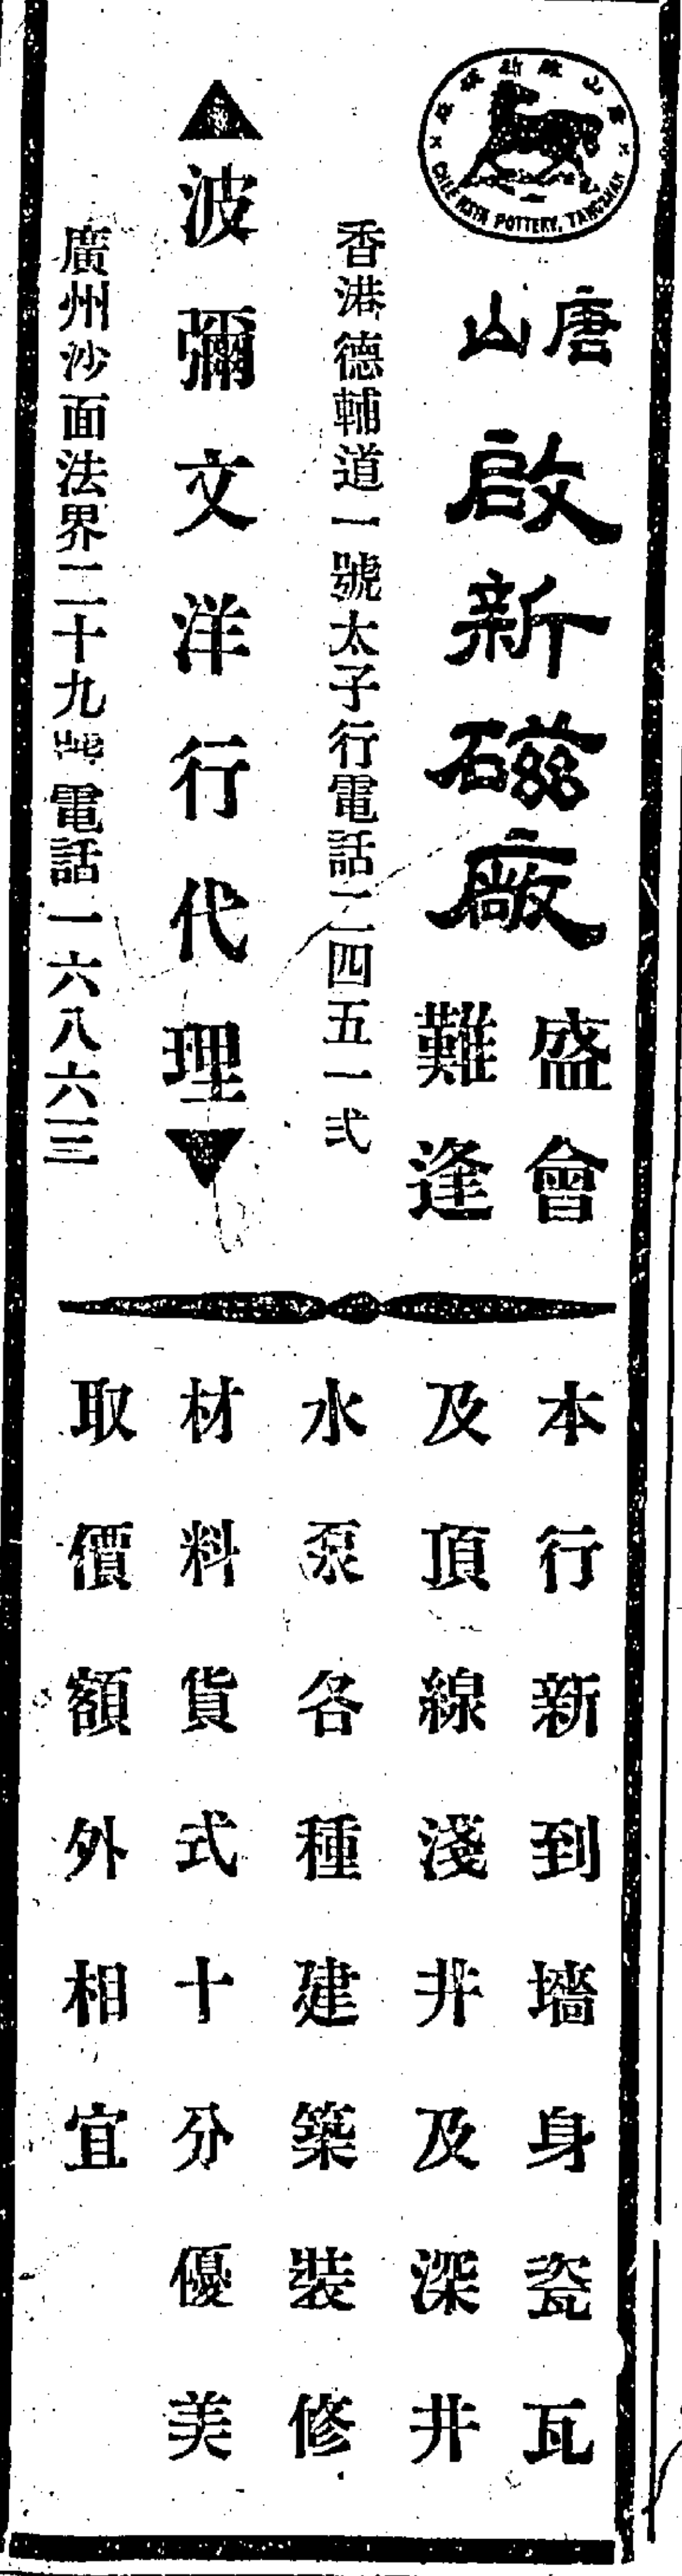 CHEE HSIN POTTERY, TANGSHAN
唐山
啟新磁廠
盛會
難逢
香港德輔道一號太子行電話二四五一弍
波彌文洋行代理
廣州沙面法界二十九號電話一六八六三
本行新到墻身瓷瓦
及頂線淺井及深井
水泵各種建築裝修
材料貨式十分優美
取價額外相宜